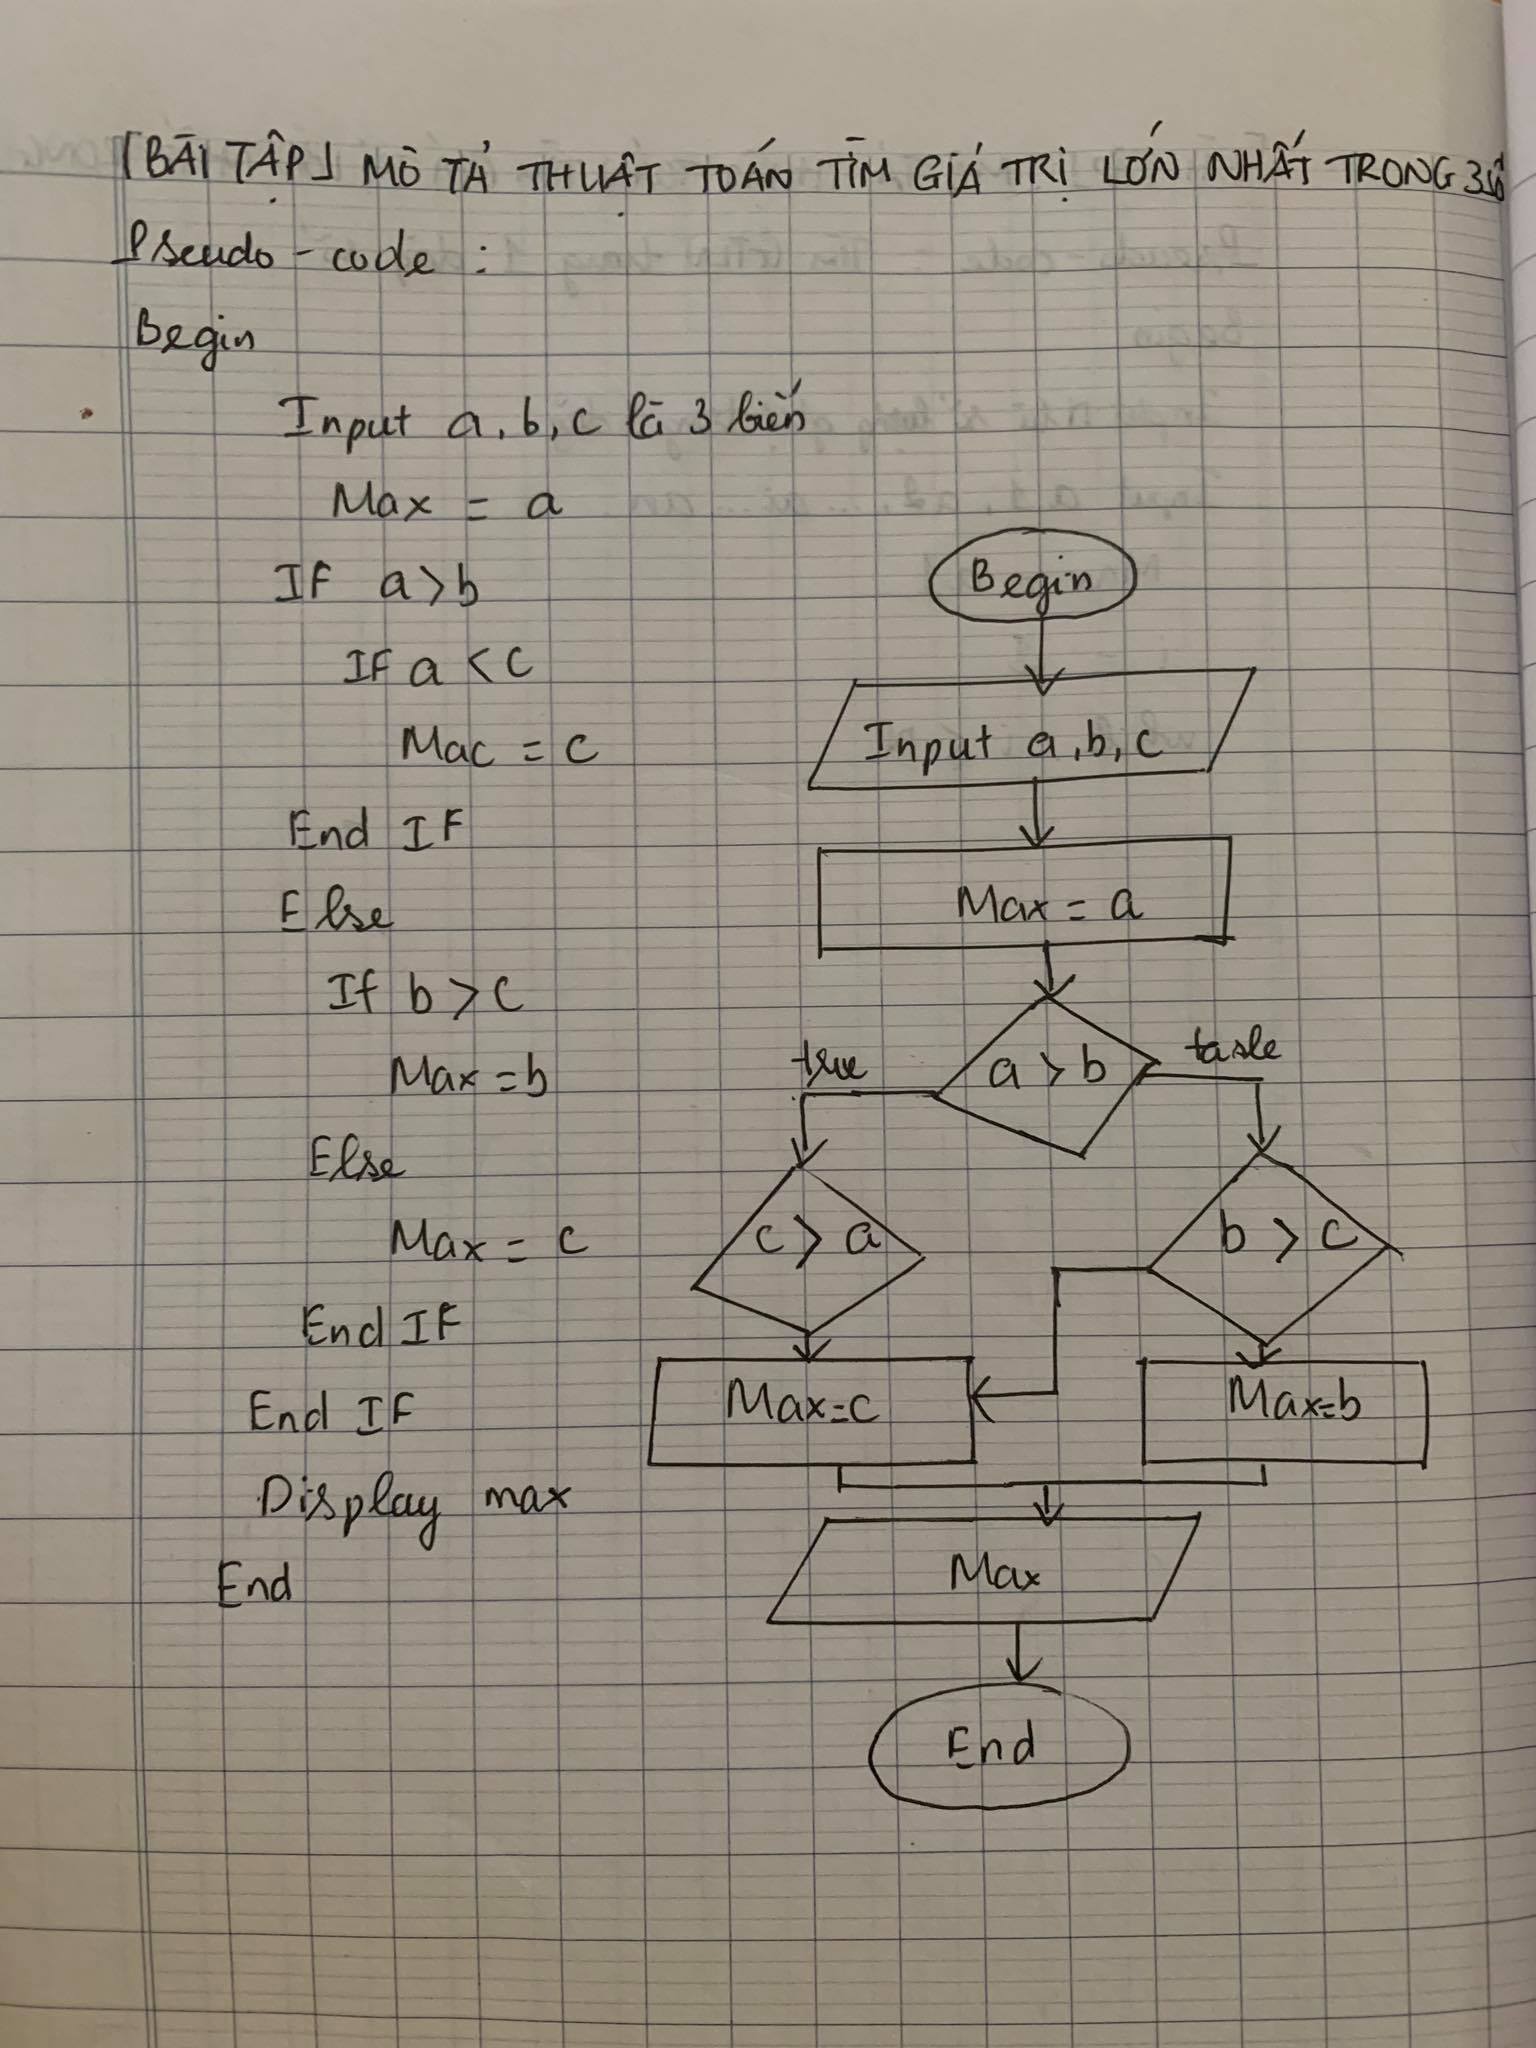 [BÀI TẬP] MÔ TẢ THUẬT TOÁN TÌM GIÁ TRỊ LỚN NHẤT TRONG 3 SỐ
Pseudo-code :
Begin
Input a, b, c là 3 biến
Max = a
IF a > b
IF a < c
Mac = c
End IF
Else
If b > c
Max = b
Else
Max = c
End IF
End IF
Display max
End
Begin
Input a, b, c
Max = a
a > b
true
fasle
c > a
b > c
Max=c
Max=b
Max
End